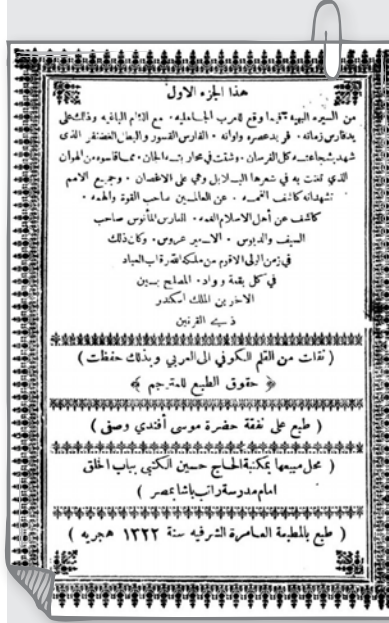 هذا الجزء الاول
من السيره البهيه فيما وقع للعرب الجاهليه · مع اللئام الباغيه وذلك على
يد فارس زمانه · فريد عصره واوانه · الفارس القسور والبطل الغضنفر الذى
شهد بشجاعته كل الفرسان · وشقت فى بحار الجان · مما قاسوه من الهوان
الذي تغنت به في شعرها البلابل وهي على الاغصان · وجميع الامم
تشهد انه كاشف الغمه · عن العالمين صاحب القوة والهمه ·
كاشف عن أهل الاسلام الغمه · الفارس المأنوس صاحب
السيف والدبوس · الامير عروس · وكان ذلك
في زمن الولى الاقرم من ملكه الله رقاب العباد
في كل بقعة وواد · المصلح بين
الاخرين الملك اسكندر
ذي القرنين
( نقلت من القلم الكوفي الى العربي وبذلك حفظت )
﴿ حقوق الطبع للمترجم ﴾
( طبع على نفقة حضرة موسى أفندي وصفى )
( محل مبيعها بمكتبة الحاج حسين الكتبي بباب الخلق
امام مدرسة راتب باشا بمصر )
( طبع بالمطبعة العامرة الشرفيه سنة ١٣٢٢ هجريه )